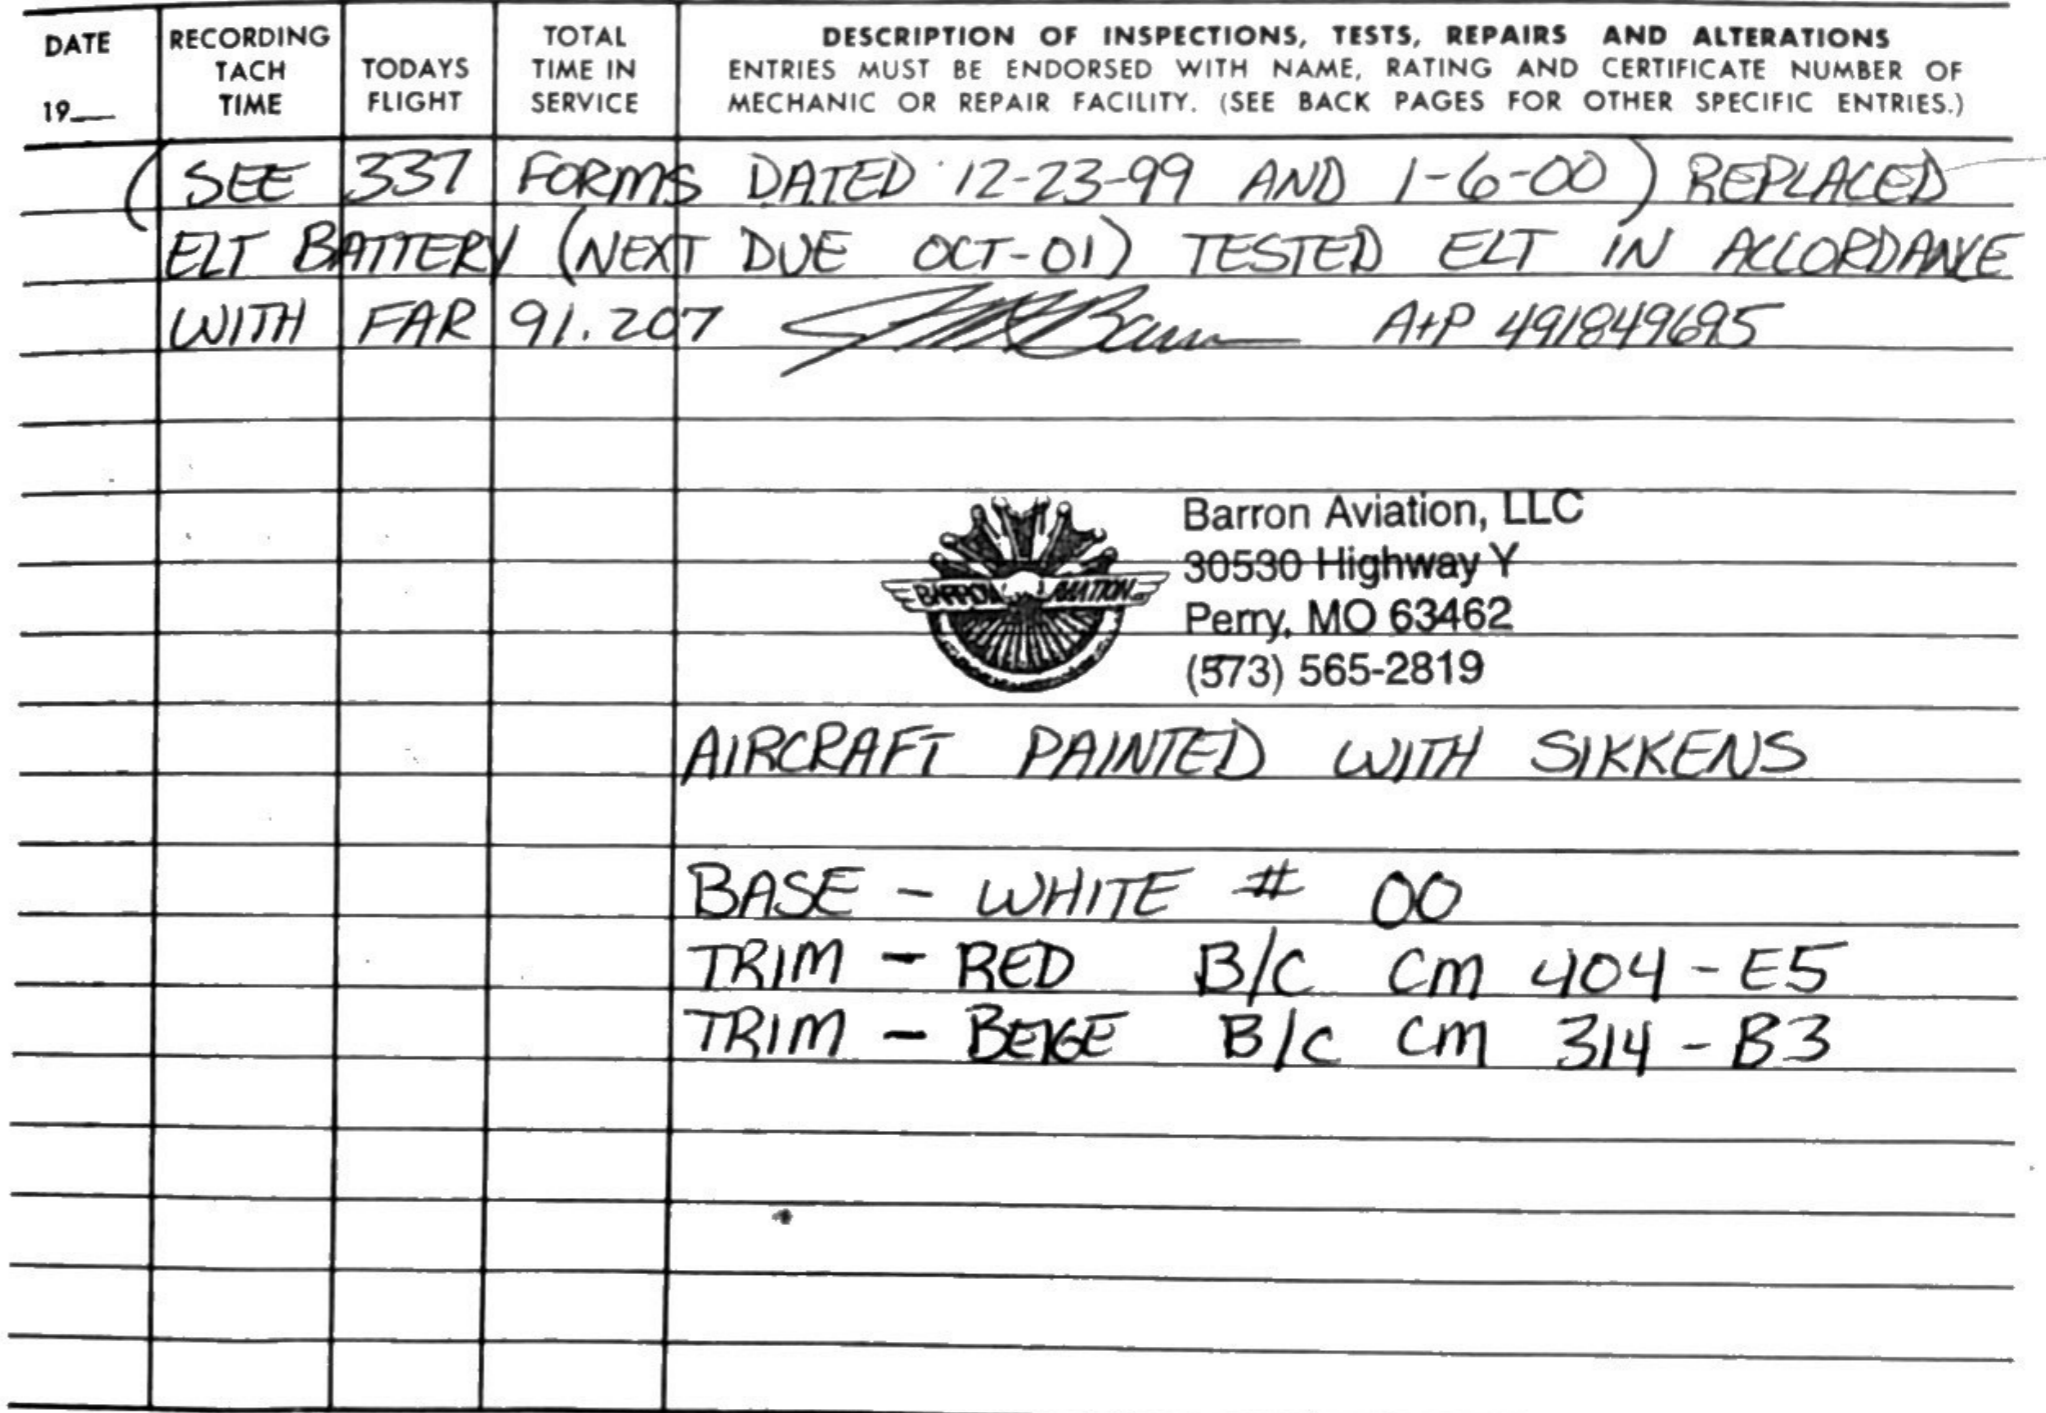 DATE
19__
RECORDING
TACH
TIME
TODAYS
FLIGHT
TOTAL
TIME IN
SERVICE
DESCRIPTION OF INSPECTIONS, TESTS, REPAIRS AND ALTERATIONS
ENTRIES MUST BE ENDORSED WITH NAME, RATING AND CERTIFICATE NUMBER OF
MECHANIC OR REPAIR FACILITY. (SEE BACK PAGES FOR OTHER SPECIFIC ENTRIES.)
(SEE 337 FORMS DATED 12-23-99 AND 1-6-00) REPLACED
ELT BATTERY (NEXT DUE OCT-01) TESTED ELT IN ACCORDANCE
WITH FAR 91.207 A+P 491849695
BARRON AVIATION
Barron Aviation, LLC
30530 Highway Y
Perry, MO 63462
(573) 565-2819
AIRCRAFT PAINTED WITH SIKKENS
BASE - WHITE # 00
TRIM - RED B/C CM 404-E5
TRIM - BEIGE B/C CM 314-B3